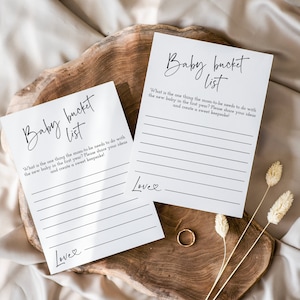 Baby bucket
list
What is the one thing the mom-to-be needs to do with
the new baby in the first year? Please share your ideas
and create a sweet keepsake!
Love
Baby bucket
list
What is the one thing the mom-to-be needs to do with
the new baby in the first year? Please share your ideas
and create a sweet keepsake!
Love